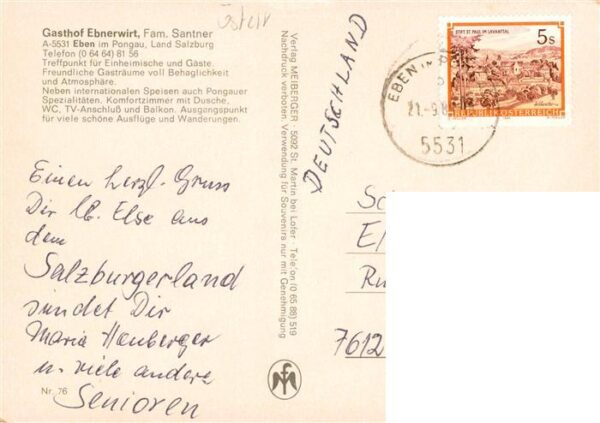 österr
Gasthof Ebnerwirt, Fam. Santner
A-5531 Eben im Pongau, Land Salzburg
Telefon (0 64 64) 81 56
Treffpunkt für Einheimische und Gäste.
Freundliche Gasträume voll Behaglichkeit
und Atmosphäre.
Neben internationalen Speisen auch Pongauer
Spezialitäten. Komfortzimmer mit Dusche,
WC, TV-Anschluß und Balkon. Ausgangspunkt
für viele schöne Ausflüge und Wanderungen.
Einen herzl. Gruss
Dir lb. Else aus
dem
Salzburgerland
sendet Dir
Maria Hauberger
u. viele andere
Senioren
Nr. 76
Verlag MEIBERGER · 5092 St. Martin bei Lofer · Telefon (0 65 88) 519
Nachdruck verboten. Verwendung für Souvenirs nur mit Genehmigung
DEUTSCHLAND
STIFT ST. PAUL IM LAVANTTAL
5s
REPUBLIK ÖSTERREICH
EBEN IM
21.-9.8
5531
7612